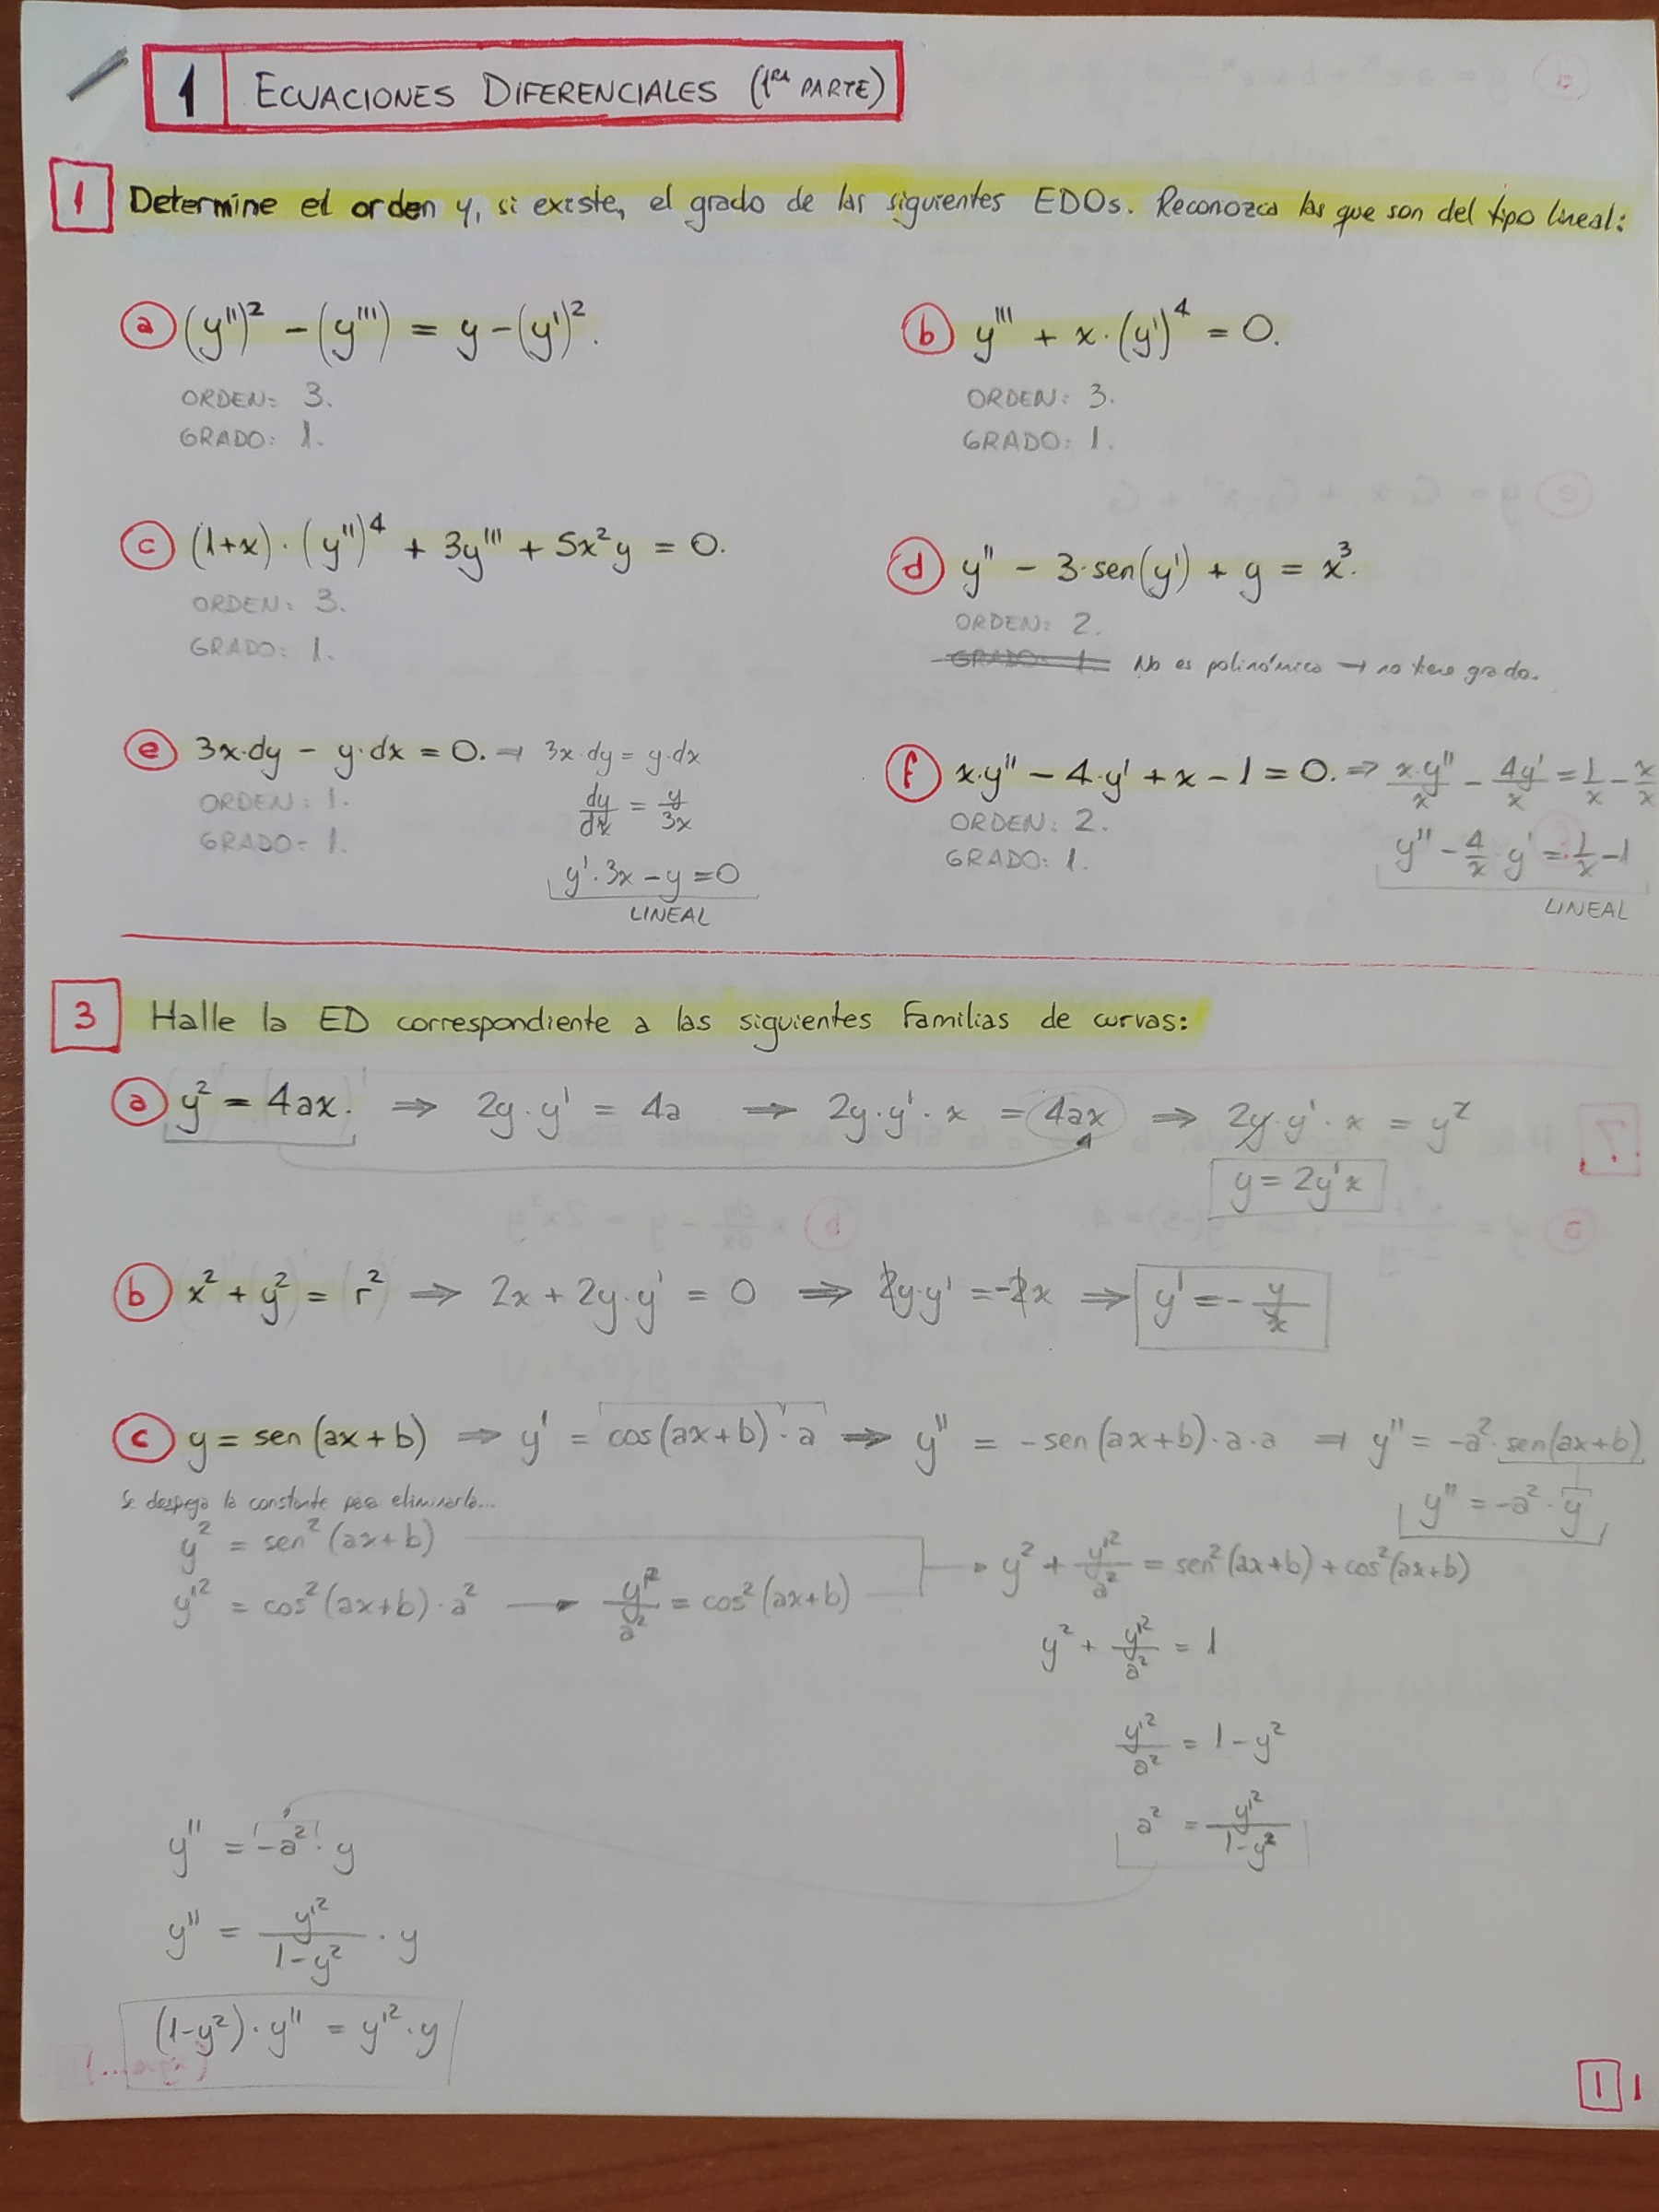 1 ECUACIONES DIFERENCIALES (1RA PARTE)
1 Determine el orden y, si existe, el grado de las siguientes EDOs. Reconozca las que son del tipo lineal:
a (y'')² - (y''') = y - (y')².
ORDEN: 3.
GRADO: 1.
b y''' + x·(y')⁴ = 0.
ORDEN: 3.
GRADO: 1.
c (1+x)·(y'')⁴ + 3y''' + 5x²y = 0.
ORDEN: 3.
GRADO: 1.
d y'' - 3·sen(y') + y = x³.
ORDEN: 2.
GRADO: 1 No es polinómica → no tiene grado.
e 3x·dy - y·dx = 0. → 3x·dy = y·dx
ORDEN: 1.
GRADO: 1.
dy/dx = y/3x
y'·3x - y = 0
LINEAL
f x·y'' - 4·y' + x - 1 = 0. ⇒ x·y''/x - 4y'/x = 1/x - x/x
ORDEN: 2.
GRADO: 1.
y'' - 4/x y' = 1/x - 1
LINEAL
3 Halle la ED correspondiente a las siguientes familias de curvas:
a y² = 4ax. ⇒ 2y·y' = 4a ⇒ 2y·y'·x = 4ax ⇒ 2y·y'·x = y²
y = 2y'x
b x² + y² = r² ⇒ 2x + 2y·y' = 0 ⇒ 2y·y' = -2x ⇒ y' = - y/x
c y = sen(ax+b) ⇒ y' = cos(ax+b)·a ⇒ y'' = -sen(ax+b)·a·a ⇒ y'' = -a²·sen(ax+b)
y'' = -a²·y
Se despeja la constante para eliminarla...
y² = sen²(ax+b)
y'² = cos²(ax+b)·a² → y'²/a² = cos²(ax+b)
→ y² + y'²/a² = sen²(ax+b) + cos²(ax+b)
y² + y'²/a² = 1
y'²/a² = 1 - y²
a² = y'²/1-y²
y'' = -a²·y
y'' = y'²/1-y² · y
(1-y²)·y'' = y'²·y
1 1